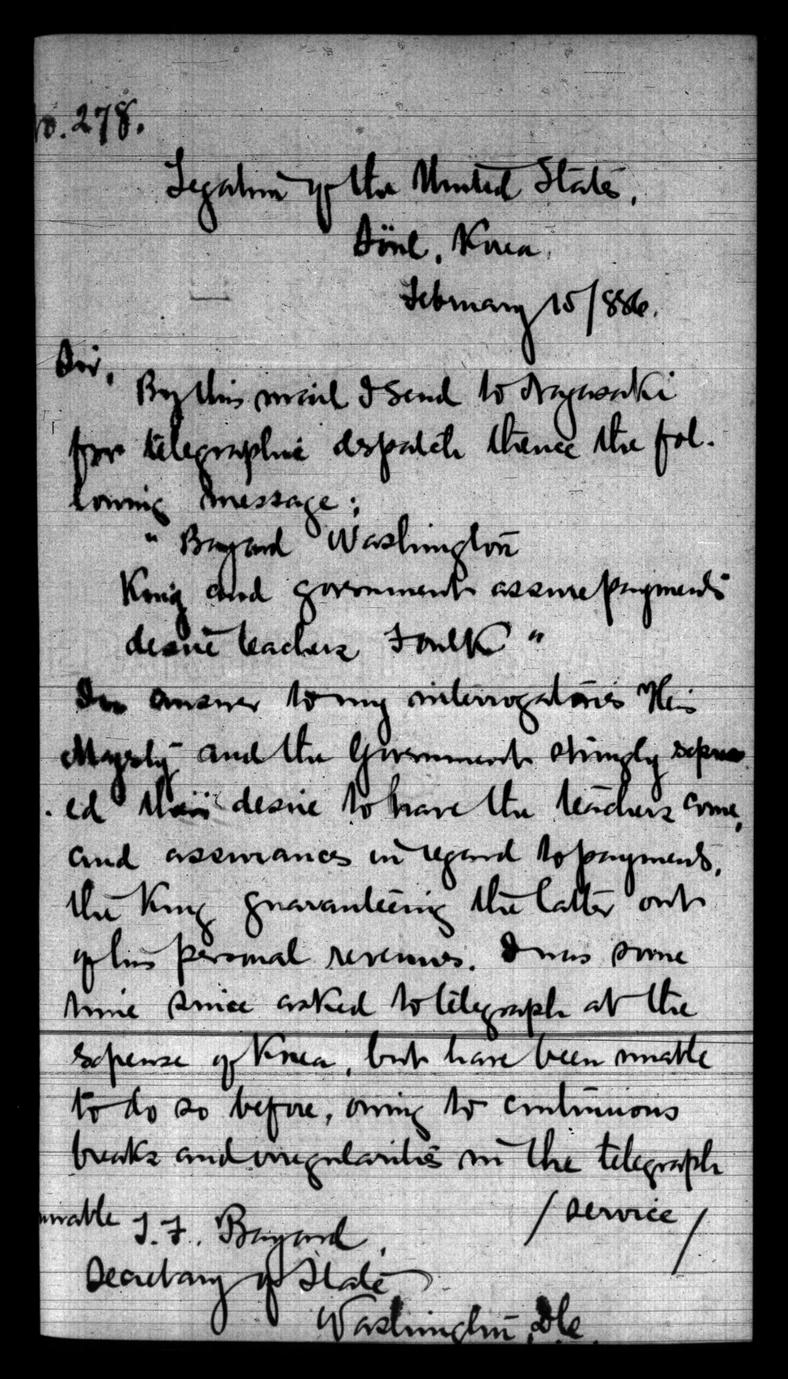 No. 278.
Legation of the United States,
Söul, Korea,
February 15/886.
Sir,
By this mail I send to Nagasaki
for telegraphic dispatch thence the fol-
lowing message:
"Bayard Washington
King and government assure payments
desire teachers Foulk"
In answer to my interrogatories His
Majesty and the Government strongly express
ed their desire to have the teachers come,
and assurances in regard to payments,
the King guaranteeing the latter out
of his personal revenues. I was some
time since asked to telegraph at the
expense of Korea, but have been unable
to do so before, owing to continuous
breaks and irregularities in the telegraph
/ service /
T. F. Bayard,
Secretary of State
Washington,